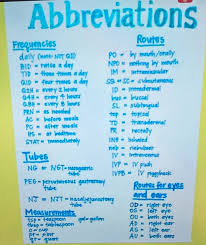 Abbreviations
Frequencies
daily (not QD)
BID = twice a day
TID = three times a day
QID = four times a day
Q2H = every 2 hours
Q4H = every 4 hours
Q6H = every 6 hours
PRN = as needed
AC = before meals
PC = after meals
HS = at bedtime
STAT = immediately
Tubes
NG or NGT = nasogastric tube
PEG = percutaneous gastrostomy tube
NJ = NJT = nasojejunal tube
Measurements
tsp = teaspoon
tbsp = tablespoon
c = cup
pt = pint
qt = quart
gal = gallon
Routes
PO = by mouth/orally
NPO = nothing by mouth
IM = intramuscular
SQ = SC = subcutaneous
ID = intradermal
buc = buccal
SL = sublingual
top = topical
TD = transdermal
PR = rectally
inh = inhaled
neb = nebulizer
IV = intravenous
IVP = IV push
IVPB = IV piggyback
Routes for eyes and ears
OD = right eye
OS = left eye
OU = both eyes
AD = right ear
AS = left ear
AU = both ears